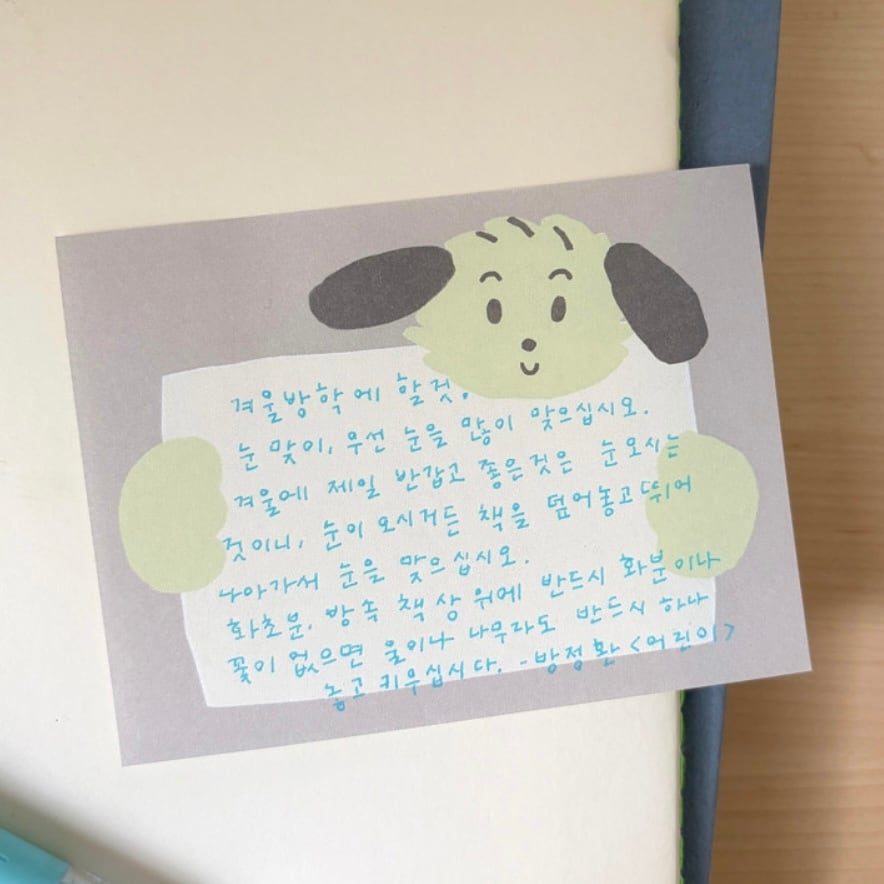 겨울방학에 할 것.
눈 맞이, 우선 눈을 많이 맞으십시오.
겨울에 제일 반갑고 좋은것은 눈오시는
것이니, 눈이 오시거든 책을 덮어놓고 뛰어
나아가서 눈을 맞으십시오.
화초분, 방 속 책상 위에 반드시 화분이나
꽃이 없으면 움이나 나무라도 반드시 하나
놓고 키우십시다. - 방정환 <어린이>